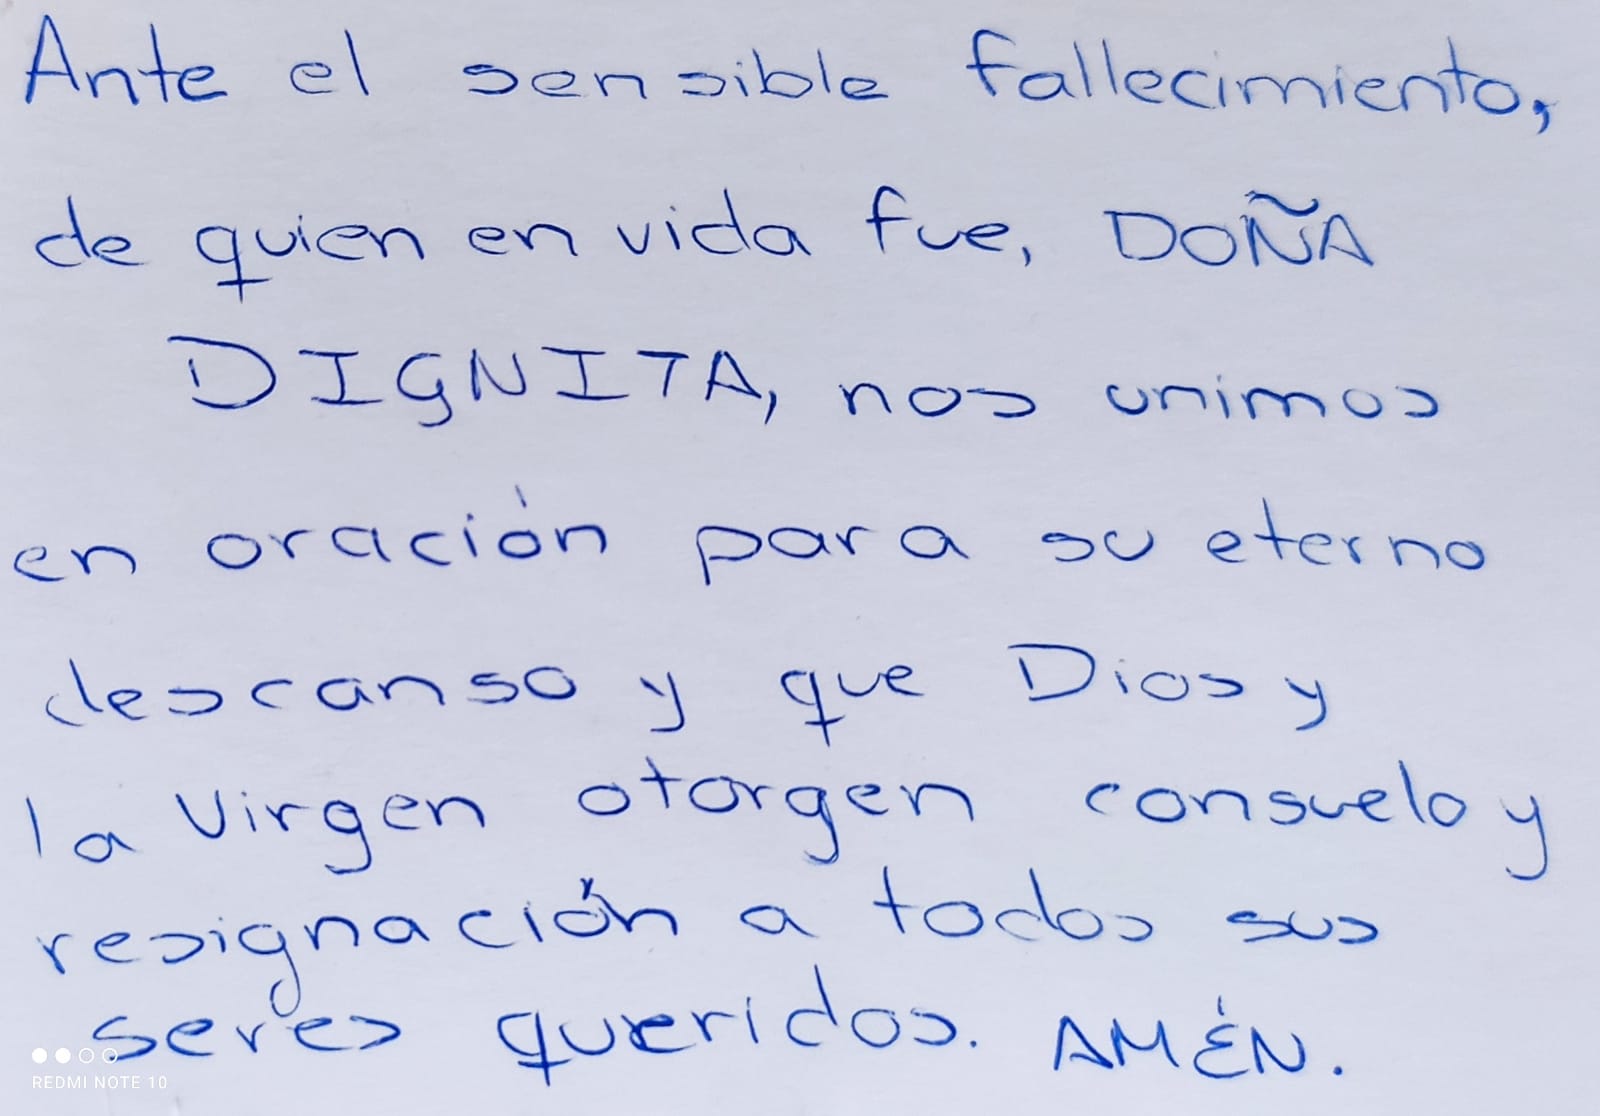 Ante el sensible fallecimiento,
de quien en vida fue, DOÑA
DIGNITA, nos unimos
en oración para su eterno
descanso y que Dios y
la Virgen otorgen consuelo y
resignación a todos sus
seres queridos. AMÉN.
REDMI NOTE 10